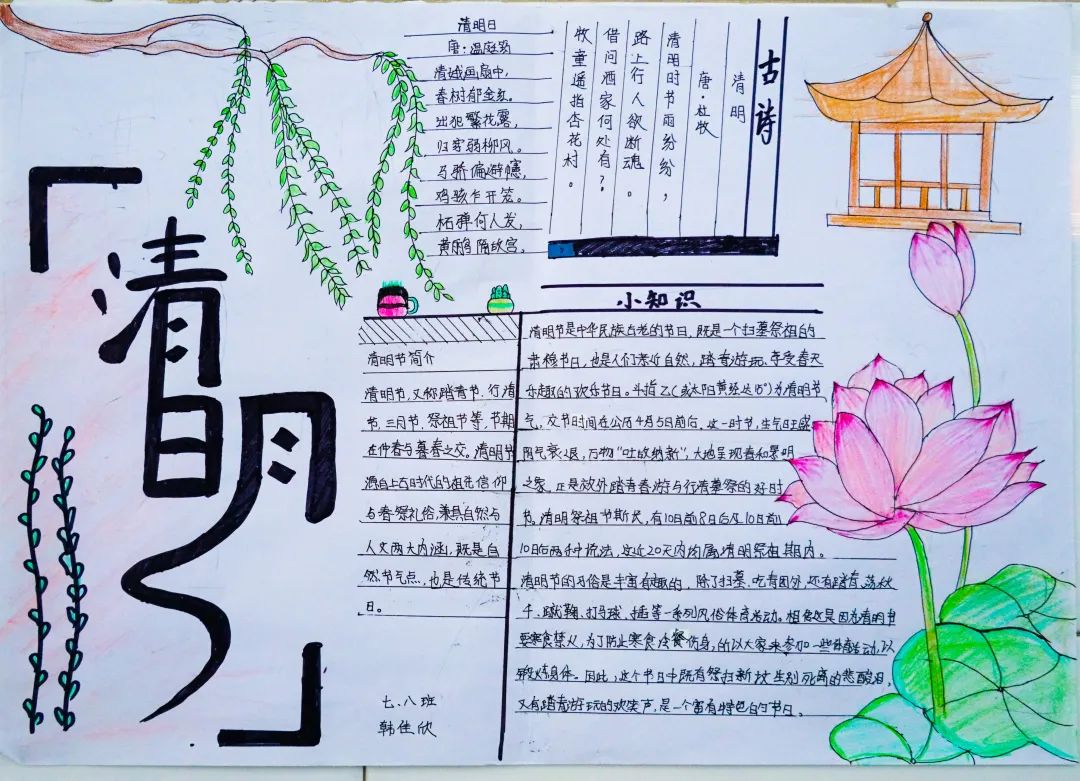 清明
清明日
唐·温庭筠
清娥画扇中，
春树郁金红。
出犯繁花露，
归穿弱柳风。
马骄偏避幰，
鸡骇乍开笼。
柘弹何人发，
黄鹂隔故宫。
古诗
清明
唐·杜牧
清明时节雨纷纷，
路上行人欲断魂。
借问酒家何处有？
牧童遥指杏花村。
清明节简介
清明节，又称踏青节、行清
节、三月节、祭祖节等，节期
在仲春与暮春之交。清明节
源自上古时代的祖先信仰
与春祭礼俗，兼具自然与
人文两大内涵，既是自
然节气点，也是传统节
日。
七、八班
韩佳欣
小知识
清明节是中华民族古老的节日，既是一个扫墓祭祖的
肃穆节日，也是人们亲近自然，踏青游玩、享受春天
乐趣的欢乐节日。斗指乙（或太阳黄经达15°）为清明节
气，交节时间在公历4月5日前后。这一时节，生气旺盛
阴气衰退，万物“吐故纳新”，大地呈现春和景明
之象，正是郊外踏青春游与行清墓祭的好时
节。清明祭祖节期长，有10日前8日后及10日前
10日后两种说法，这近20天内均属清明祭祖期内。
清明节的习俗是丰富有趣的，除了扫墓、吃青团外，还有踏青、荡秋
千、蹴鞠、打马球、插等一系列风俗体育活动。相传这是因为清明节
要寒食禁火，为了防止寒食冷餐伤身，所以大家来参加一些体育活动，以
锻炼身体。因此，这个节日中既有祭扫新坟生别死离的悲酸泪，
又有踏青游玩的欢笑声，是一个富有特色的节日。